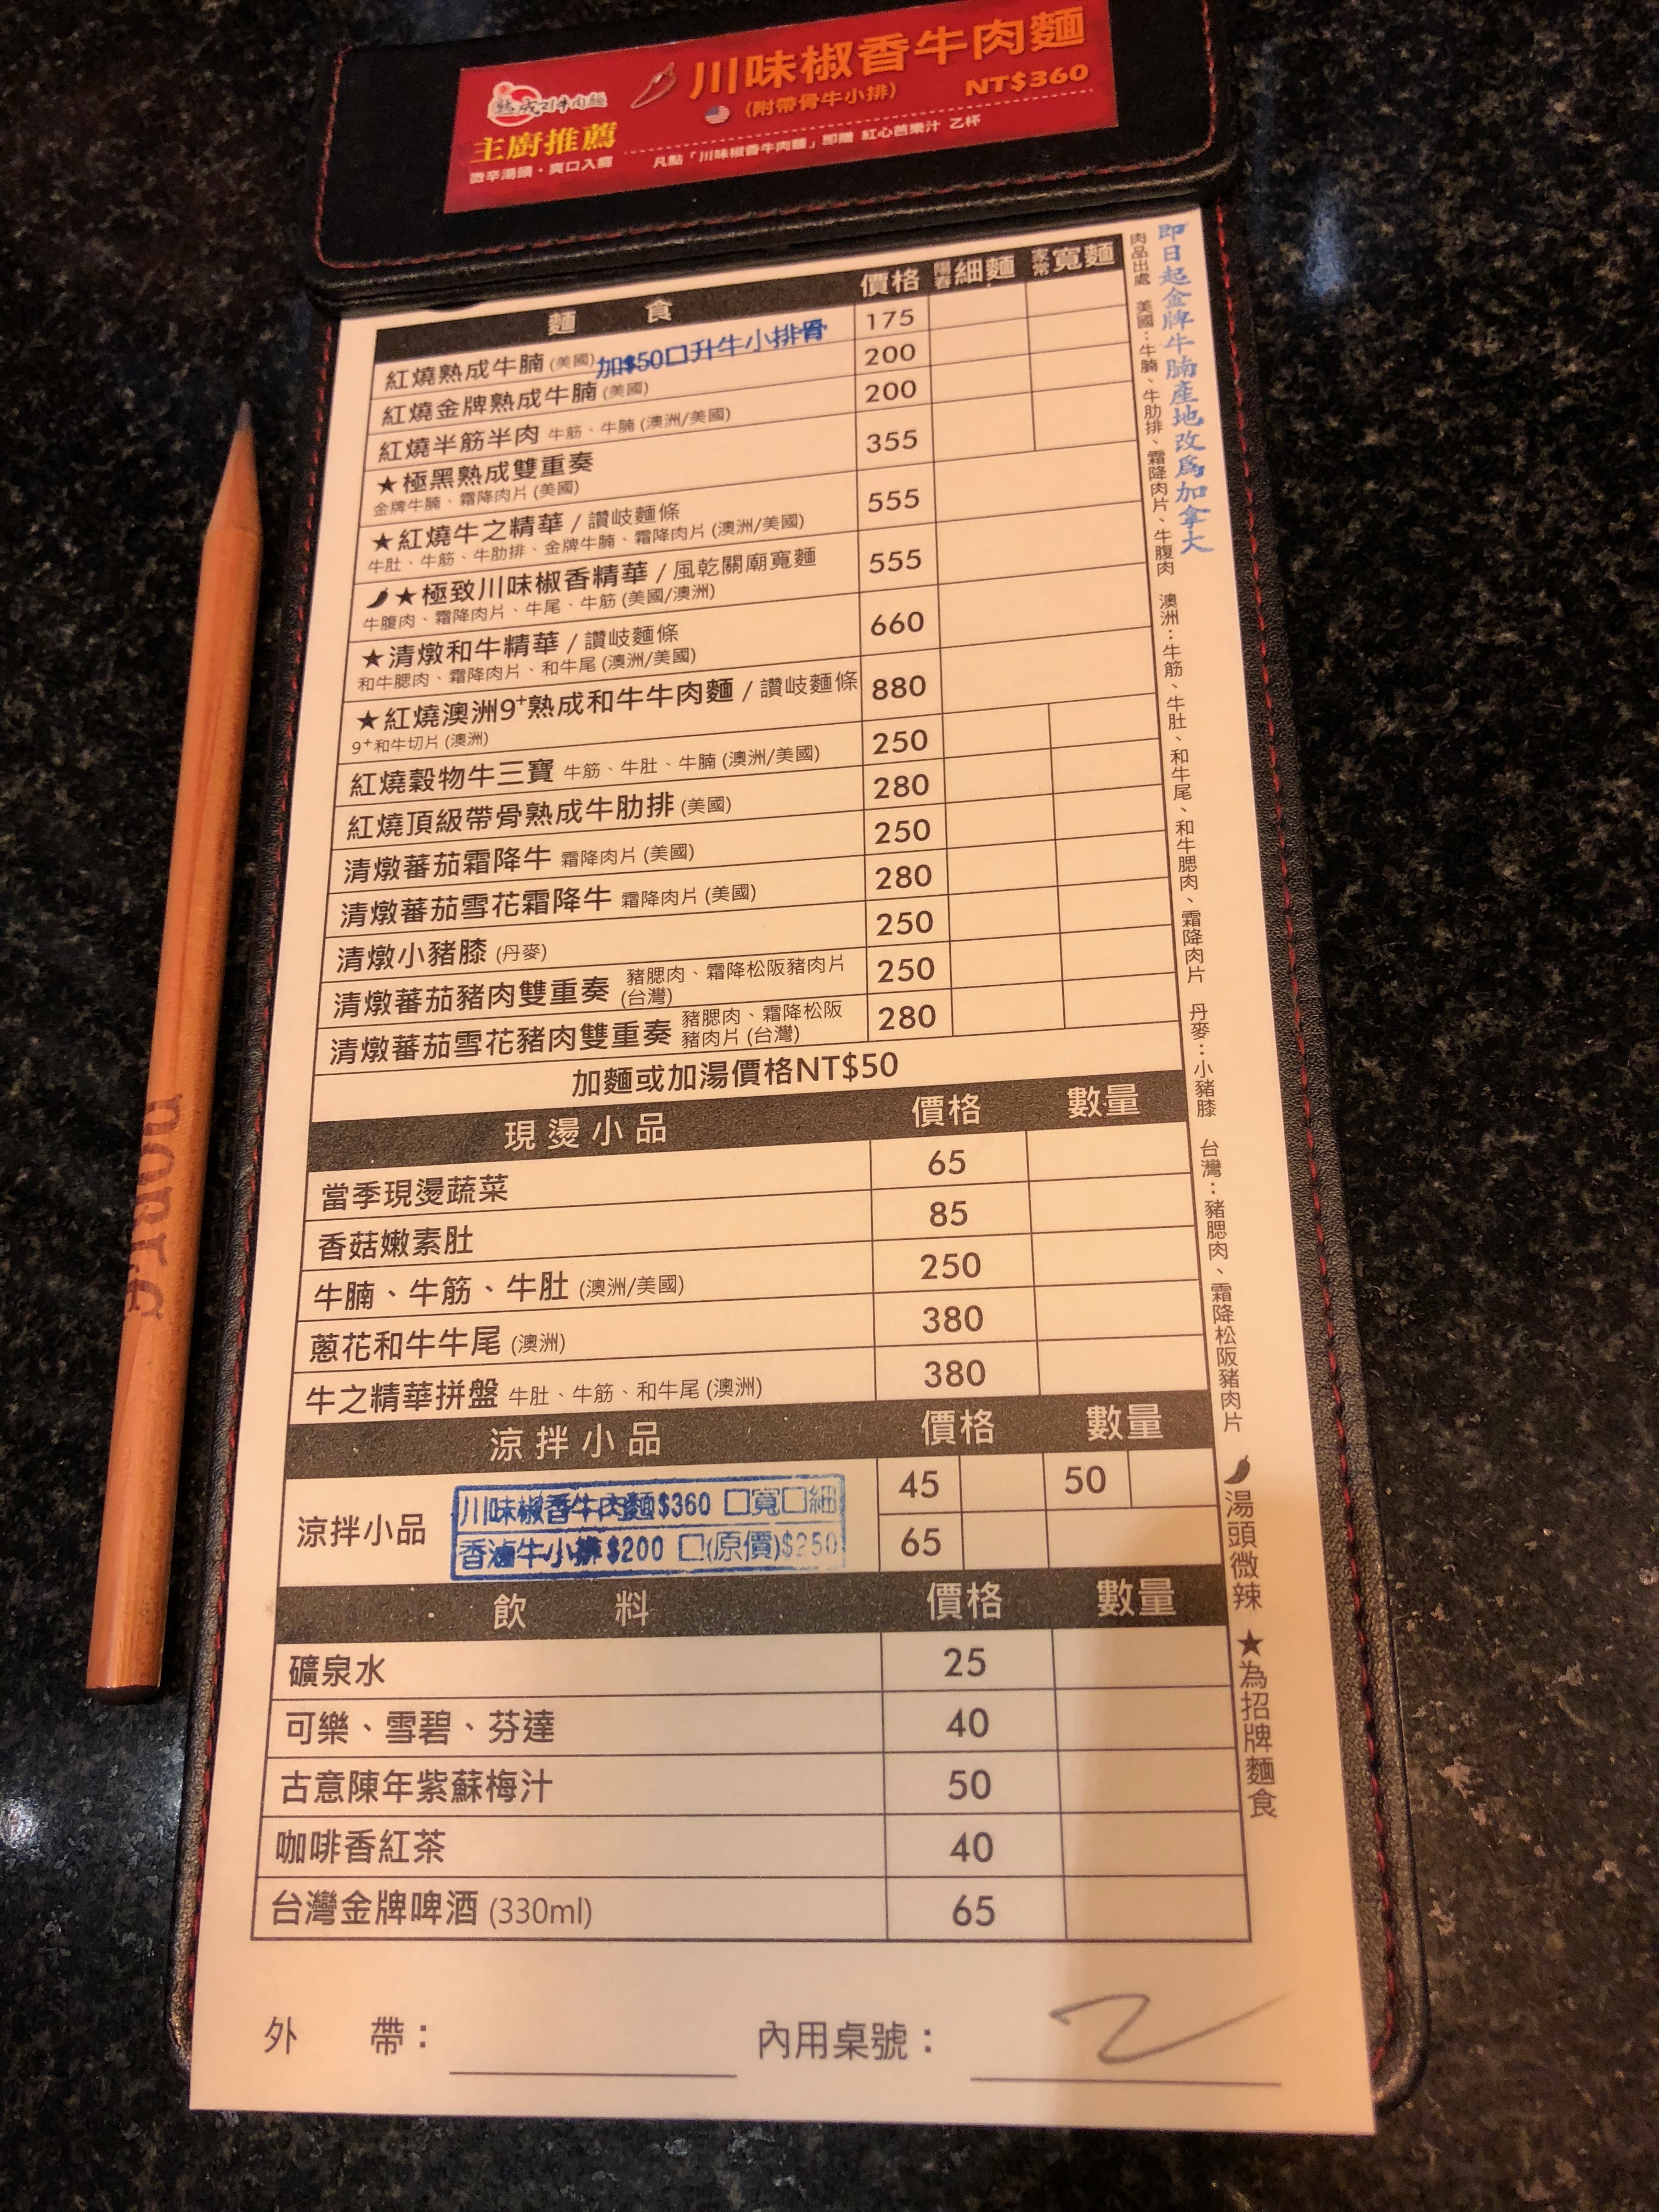 熟成21牛肉麵
主廚推薦
微辛湯頭・爽口入癮
川味椒香牛肉麵
(附帶骨牛小排)
NT$360
凡點「川味椒香牛肉麵」即贈 紅心芭樂汁 乙杯
麵 食 價格 陽春細麵 家常寬麵
紅燒熟成牛腩 (美國) 加$50口升牛小排骨 175
紅燒金牌熟成牛腩 (美國) 200
紅燒半筋半肉 牛筋、牛腩 (澳洲/美國) 200
★極黑熟成雙重奏 355
金牌牛腩、霜降肉片 (美國)
★紅燒牛之精華 / 讚岐麵條 555
牛肚、牛筋、牛肋排、金牌牛腩、霜降肉片 (澳洲/美國)
★極致川味椒香精華 / 風乾關廟寬麵 555
牛腹肉、霜降肉片、牛尾、牛筋 (美國/澳洲)
★清燉和牛精華 / 讚岐麵條 660
和牛腮肉、霜降肉片、和牛尾 (澳洲/美國)
★紅燒澳洲9⁺熟成和牛牛肉麵 / 讚岐麵條 880
9⁺和牛切片 (澳洲)
紅燒穀物牛三寶 牛筋、牛肚、牛腩 (澳洲/美國) 250
紅燒頂級帶骨熟成牛肋排 (美國) 280
清燉蕃茄霜降牛 霜降肉片 (美國) 250
清燉蕃茄雪花霜降牛 霜降肉片 (美國) 280
清燉小豬膝 (丹麥) 250
清燉蕃茄豬肉雙重奏 豬腮肉、霜降松阪豬肉片 (台灣) 250
清燉蕃茄雪花豬肉雙重奏 豬腮肉、霜降松阪豬肉片 (台灣) 280
加麵或加湯價格NT$50
現燙小品 價格 數量
當季現燙蔬菜 65
香菇嫩素肚 85
牛腩、牛筋、牛肚 (澳洲/美國) 250
蔥花和牛牛尾 (澳洲) 380
牛之精華拼盤 牛肚、牛筋、和牛尾 (澳洲) 380
涼拌小品 價格 數量
涼拌小品 45 50
65
川味椒香牛肉麵$360 □寬□細
香滷牛小排$200 □(原價)$250
飲 料 價格 數量
礦泉水 25
可樂、雪碧、芬達 40
古意陳年紫蘇梅汁 50
咖啡香紅茶 40
台灣金牌啤酒 (330ml) 65
外 帶：
內用桌號： 2
即日起金牌牛腩產地改為加拿大
肉品出處 美國：牛腩、牛肋排、霜降肉片、牛腹肉 澳洲：牛筋、牛肚、和牛尾、和牛腮肉、霜降肉片 丹麥：小豬膝 台灣：豬腮肉、霜降松阪豬肉片
湯頭微辣 ★為招牌麵食